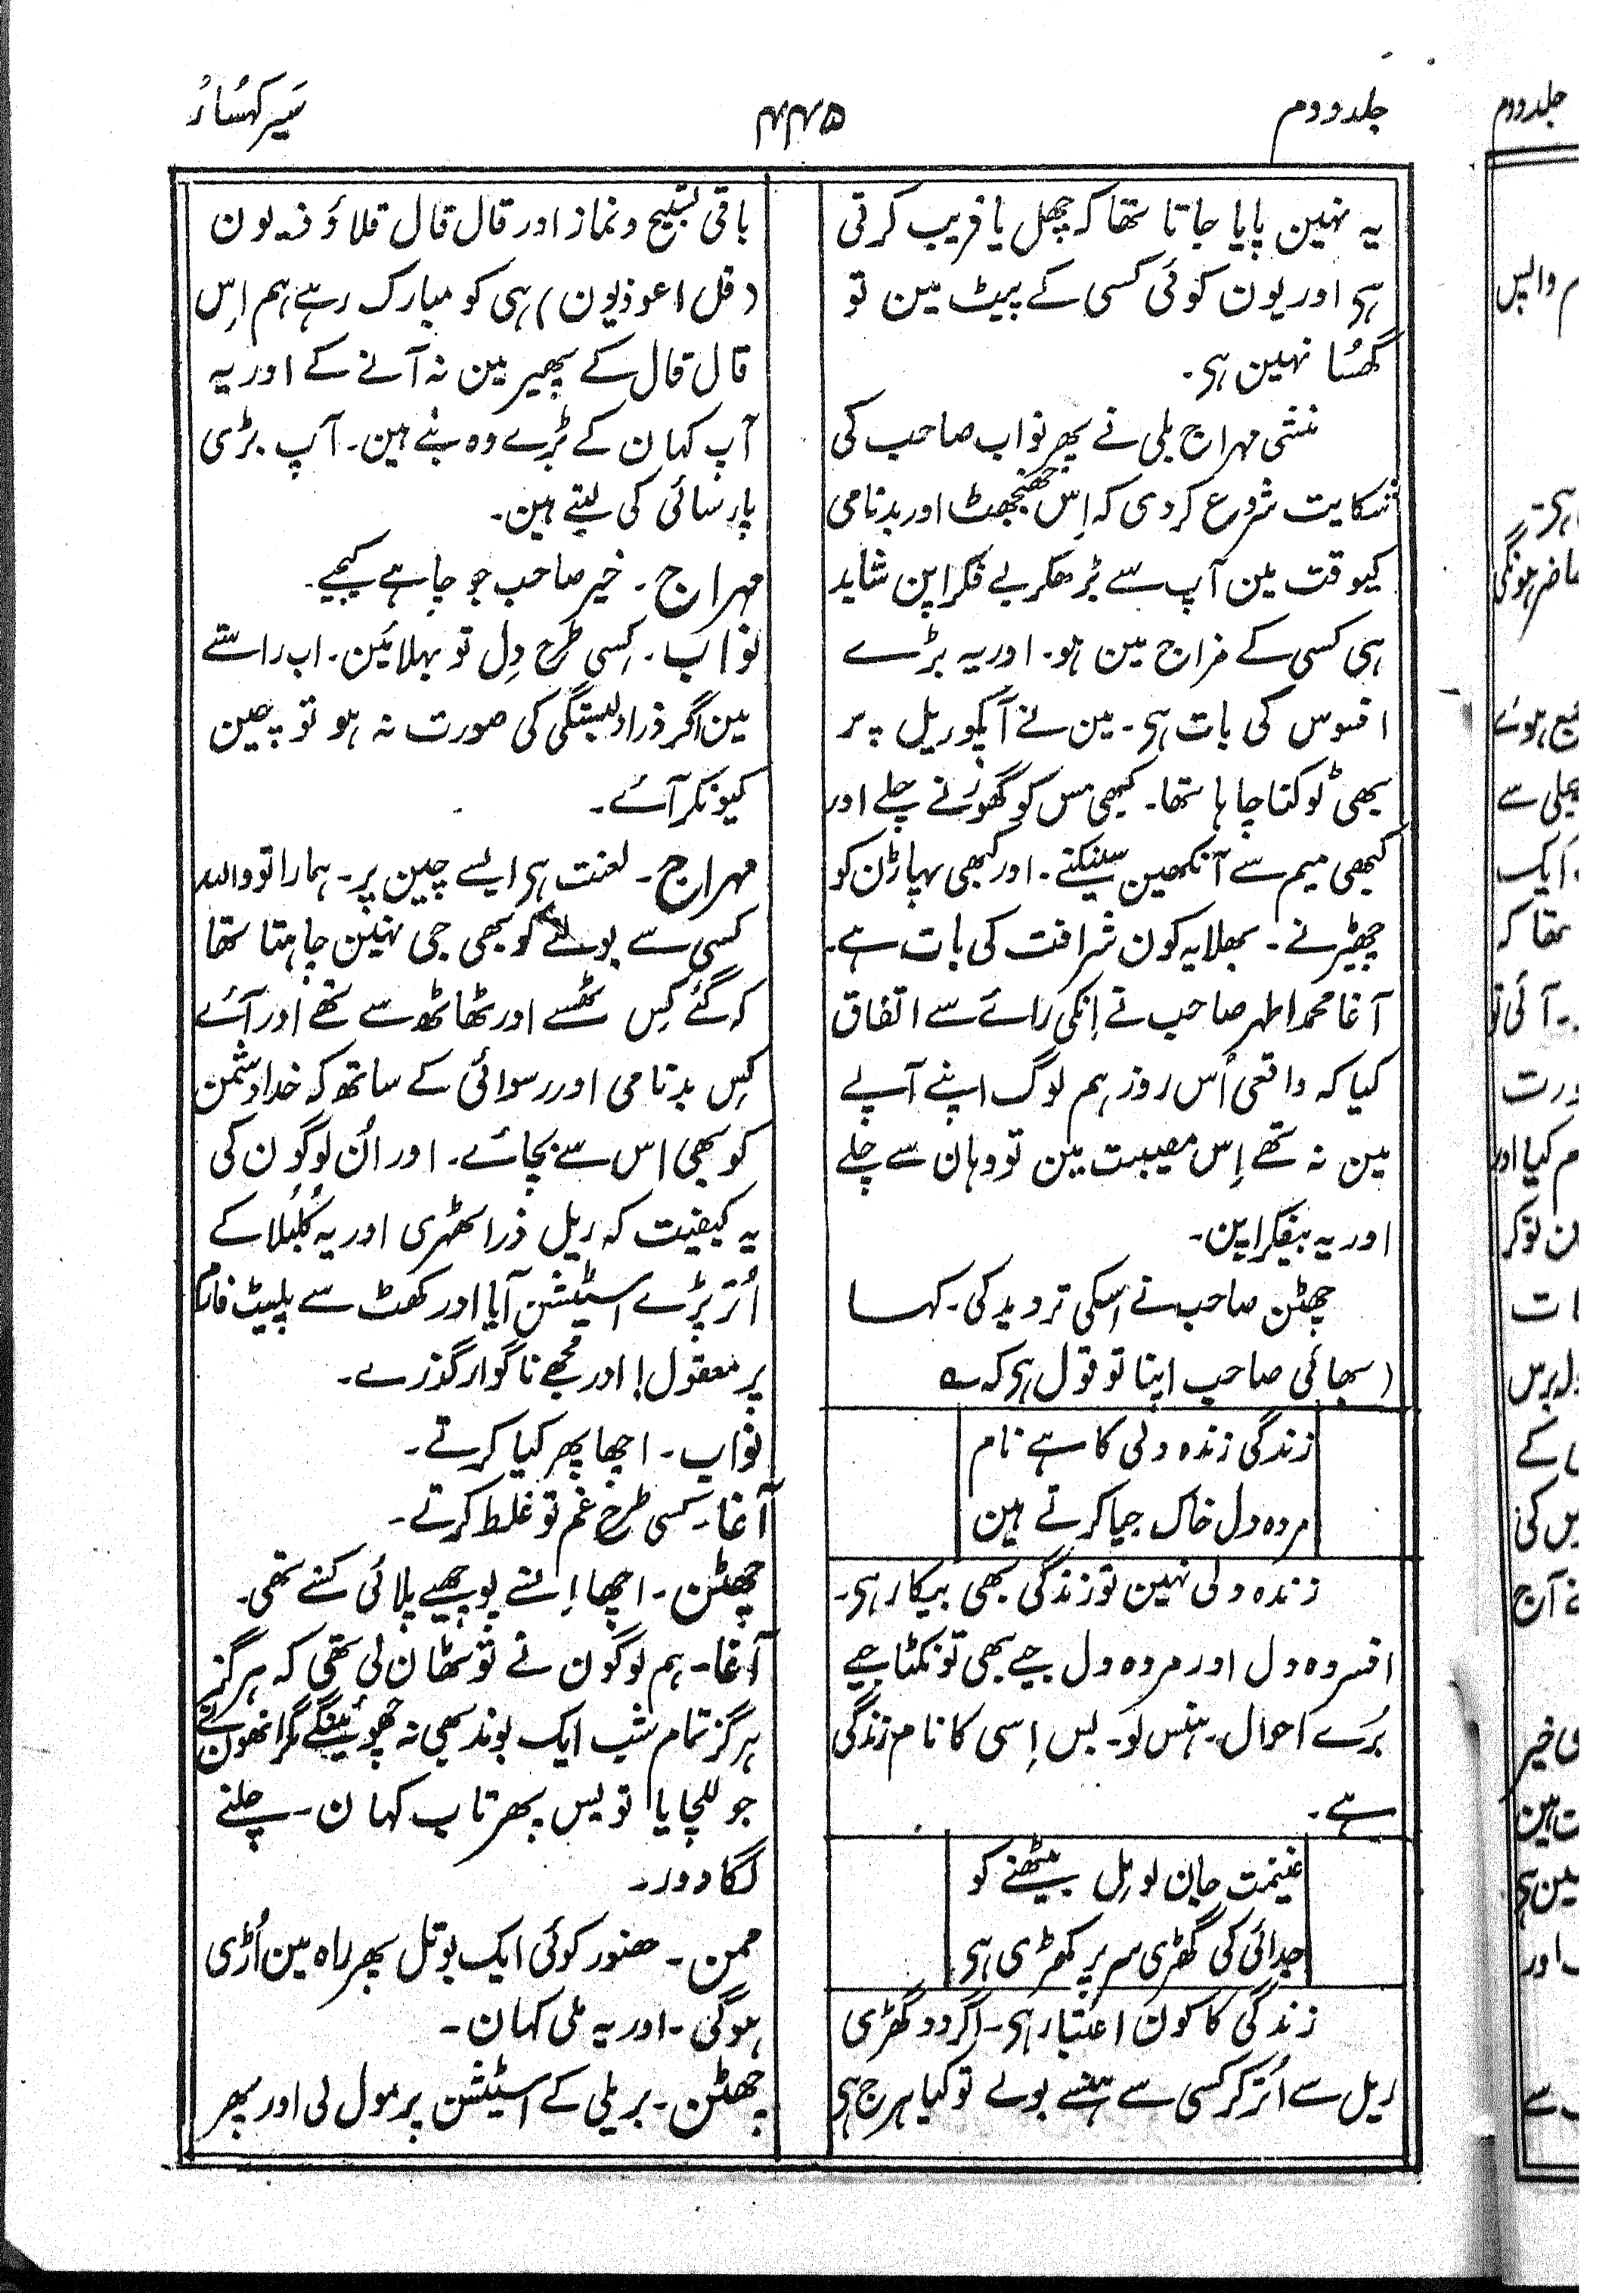 جلد دوم
۴۴۵
سَیر کہسُار
یہ نہین پایا جاتا تھا کہ چھل یا فریب کرتی
ہی اور یون کوئی کسی کے پیٹ مین تو
گھسُا نہین ہی۔
منشی مہراج بلی نے پھر نواب صاحب کی
شکایت شروع کردی کہ اِس جھنجھٹ اور بدنامی
کیوقت مین آپ سے بڑھکر بے فکراپن شاید
ہی کسی کے مزاج مین ہو۔ اور یہ بڑے
افسوس کی بات ہی۔ مین نے آپکو ریل پر
بھی ٹوکنا چاہا تھا۔ کبھی مس کو گھورنے چلے اور
کبھی میم سے آنکھین سینکتے۔ اور کبھی پہاڑن کو
چھیڑنے۔ بھلا یہ کون شرافت کی بات ہے۔
آغا محمد اطہر صاحب نے اِنکی رائے سے اتفاق
کیا کہ واقعی اُس روز ہم لوگ اپنے آپے
مین نہ تھے اِس مصیبت مین تو وہان سے چلے
اور یہ بیفکراپن۔
چھٹن صاحب نے اسکی تردید کی۔ کہا
(بھائی صاحب اپنا تو قول ہی کہ ؎
زندگی زندہ دلی کا ہے نام
مردہ دل خاک جیا کرتے ہین
زندہ دلی نہین تو زندگی بھی بیکار ہی۔
افسردہ دل اور مردہ دل جیے بھی تو نکٹا جیے
بُرے احوال۔ ہنس لو۔ بس اِسی کا نام زندگی
ہے۔
غنیمت جان لو مِل بیٹھنے کو
جدائی کی گھڑی سر پر کھڑی ہی
زندگی کا کون اعتبار ہی۔ اگر دو گھڑی
ریل سے اُتر کر کسی سے ہنسے بولے تو کیا ہرج ہی
باقی تسبیح و نماز اور قال قال قلاؤذیون
(قل اعوذیون) ہی کو مبارک رہے ہم اِس
قال قال کے پھیر مین نہ آنے کے اور یہ
آپ کہان کے بڑے وہ بنے ہین۔ آپ بڑی
پارسائی کی لیتے ہین۔
مہراج۔ خیر صاحب جو چاہے کہیے۔
نواب۔ کسی طرح دِل تو بہلائین۔ اب راستے
مین اگر ذرا دلبستگی کی صورت نہ ہو تو چین
کیونکر آئے۔
مہراج۔ لعنت ہی ایسے چین پر۔ ہمارا تو واللہ
کسی سے بولنے کو بھی جی نہین چاہتا تھا
کہ گئے کِس ٹھسے اور ٹھاٹھ سے تھے اور آئے
کِس بدنامی اور رسوائی کے ساتھ کہ خدا دشمن
کو بھی اس سے بچائے۔ اور اُن لوگون کی
یہ کیفیت کہ ریل ذرا ٹھہری اور یہ کُلبُلا کے
اُتر پڑے اسٹیشن آیا اور کھٹ سے پلیٹ فارم
پر معقول! اور مجھے ناگوار گذرے۔
نواب۔ اچھا پھر کیا کرتے۔
آغا۔ کسی طرح غم تو غلط کرتے۔
چھٹن۔ اچھا اِنسے پوچھیے پلائی کسنے تھی۔
آغا۔ ہم لوگون نے تو ٹھان لی تھی کہ ہرگز
ہرگز تمام شب ایک بوند بھی نہ چھوئینگے مگر انھون نے
جو للچایا تو بس پھر تاب کہان۔ چلنے
لگا دور۔
ممن۔ حضور کوئی ایک بوتل بھر راہ مین اُڑی
ہوگی۔ اور یہ ملی کہان۔
چھٹن۔ بریلی کے اسٹیشن پر مول لی اور پھر
جلد دوم
واپس
حاضر ہونگی
ایک
تھا کہ
آئی تو
کیا اور
آج
خیر
اور